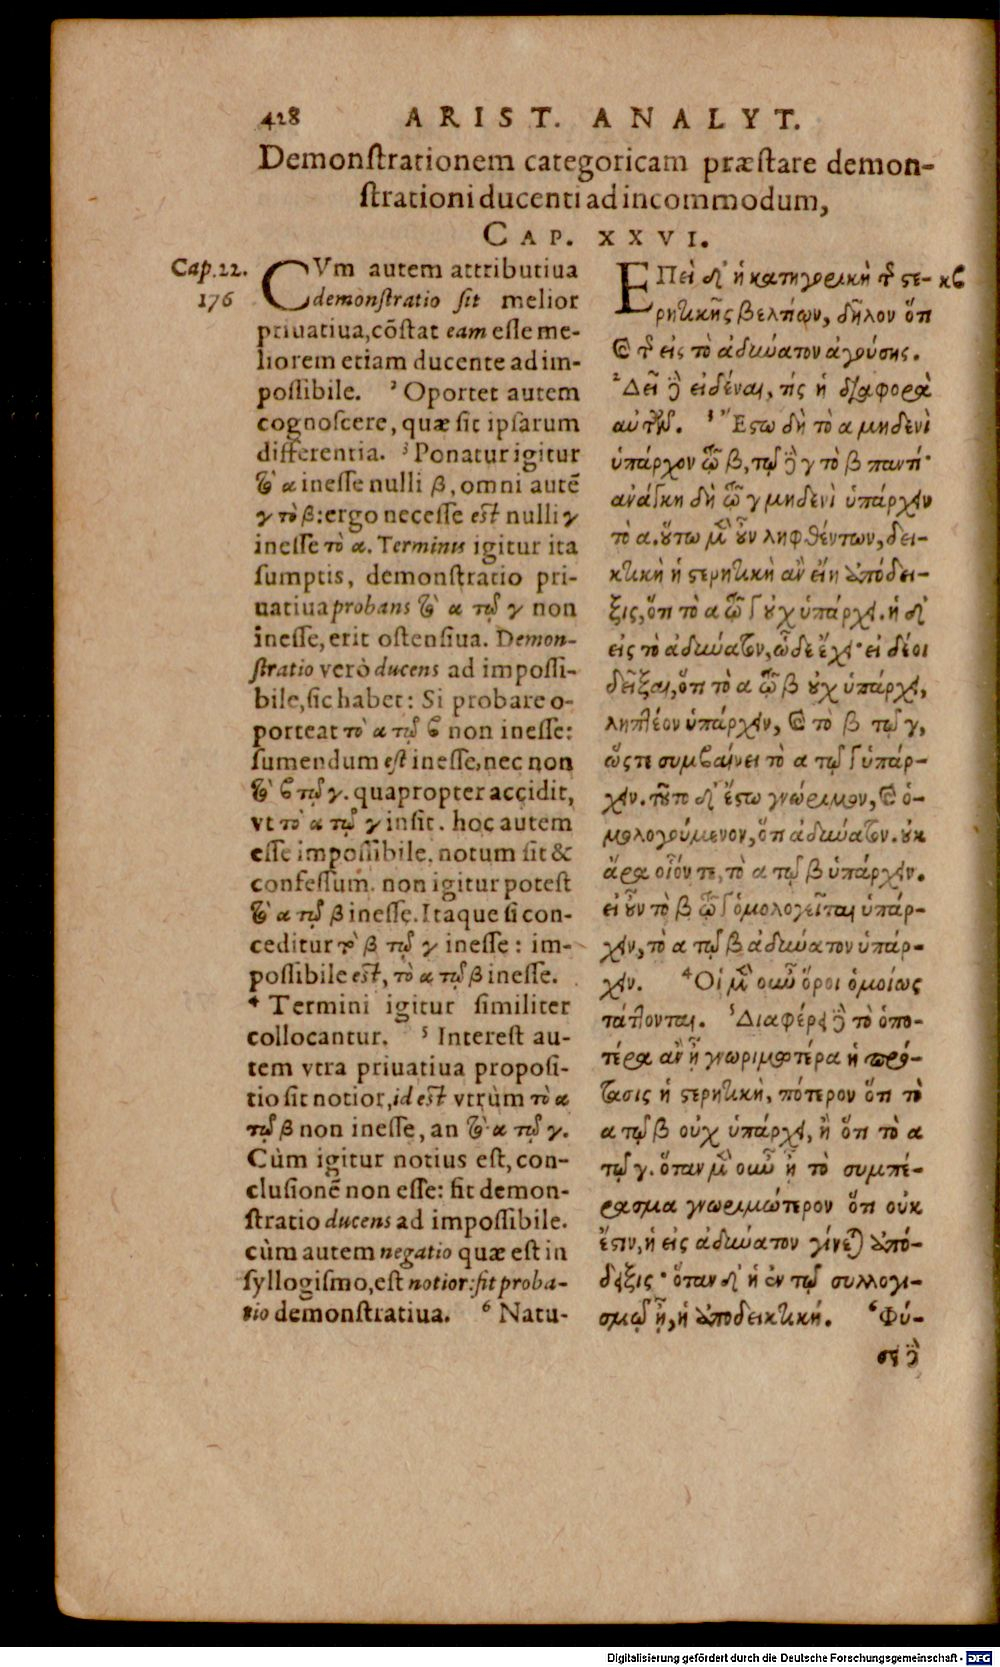 428 ARIST. ANALYT.
Demonstrationem categoricam præstare demon-
strationi ducenti ad incommodum,
CAP. XXVI.
Cap. 22.
176
CVm autem attributiua
demonstratio sit melior
priuatiua, cōstat eam esse me-
liorem etiam ducente ad im-
possibile. ² Oportet autem
cognoscere, quæ sit ipsarum
differentia. ³ Ponatur igitur
τὸ α inesse nulli β, omni autē
γ τὸ β: ergo necesse est nulli γ
inesse τὸ α. Terminis igitur ita
sumptis, demonstratio pri-
uatiua probans τὸ α τῷ γ non
inesse, erit ostensiua. Demon-
stratio verò ducens ad impossi-
bile, sic habet: Si probare o-
porteat τὸ α τῷ β non inesse:
sumendum est inesse, nec non
τὸ β τῷ γ. quapropter accidit,
vt τὸ α τῷ γ insit. hoc autem
esse impossibile, notum sit &
confessum. non igitur potest
τὸ α τῷ β inesse. Itaque si con-
ceditur τὸ β τῷ γ inesse: im-
possibile est, τὸ α τῷ β inesse.
⁴ Termini igitur similiter
collocantur. ⁵ Interest au-
tem vtra priuatiua proposi-
tio sit notior, id est vtrùm τὸ α
τῷ β non inesse, an τὸ α τῷ γ.
Cùm igitur notius est, con-
clusionē non esse: fit demon-
stratio ducens ad impossibile.
cùm autem negatio quæ est in
syllogismo, est notior: fit proba-
tio demonstratiua. ⁶ Natu-
ἘΠεὶ δ' ἡ κατηγορικὴ τῆς στε- κϛ
ρητικῆς βελτίων, δῆλον ὅτι
καὶ τῆς εἰς τὸ ἀδύνατον ἀγούσης.
²Δεῖ δὲ εἰδέναι, τίς ἡ διαφορὰ
αὐτῶν. ³ Ἔστω δὴ τὸ α μηδενὶ
ὑπάρχον τῷ β, τῷ δὲ γ τὸ β παντί·
ἀνάγκη δὴ τῷ γ μηδενὶ ὑπάρχειν
τὸ α. οὕτω μὲν οὖν ληφθέντων, δει-
κτικὴ ἡ στερητικὴ ἂν εἴη ἀπόδει-
ξις, ὅτι τὸ α τῷ γ οὐχ ὑπάρχει. ἡ δ'
εἰς τὸ ἀδύνατον, ὧδε ἔχει· εἰ δέοι
δεῖξαι, ὅτι τὸ α τῷ β οὐχ ὑπάρχει,
ληπτέον ὑπάρχειν, καὶ τὸ β τῷ γ,
ὥστε συμβαίνει τὸ α τῷ γ ὑπάρ-
χειν. τοῦτο δ' ἔστω γνώριμον, καὶ ὁ-
μολογούμενον, ὅτι ἀδύνατον. οὐκ
ἄρα οἷόν τε, τὸ α τῷ β ὑπάρχειν.
εἰ οὖν τὸ β τῷ γ ὁμολογεῖται ὑπάρ-
χειν, τὸ α τῷ β ἀδύνατον ὑπάρ-
χειν. ⁴Οἱ μὲν οὖν ὅροι ὁμοίως
τάττονται. ⁵Διαφέρει δὲ τὸ ὁπο-
τέρα ἂν ᾖ γνωριμωτέρα ἡ πρό-
τασις ἡ στερητικὴ, πότερον ὅτι τὸ
α τῷ β οὐχ ὑπάρχει, ἢ ὅτι τὸ α
τῷ γ. ὅταν μὲν οὖν ᾖ τὸ συμπέ-
ρασμα γνωριμώτερον ὅτι οὐκ
ἔστιν, ἡ εἰς ἀδύνατον γίνεται ἀπό-
δειξις· ὅταν δ' ἡ ἐν τῷ συλλογι-
σμῷ ᾖ, ἡ ἀποδεικτική. ⁶Φύ-
σει δὲ
Digitalisierung gefördert durch die Deutsche Forschungsgemeinschaft - DFG